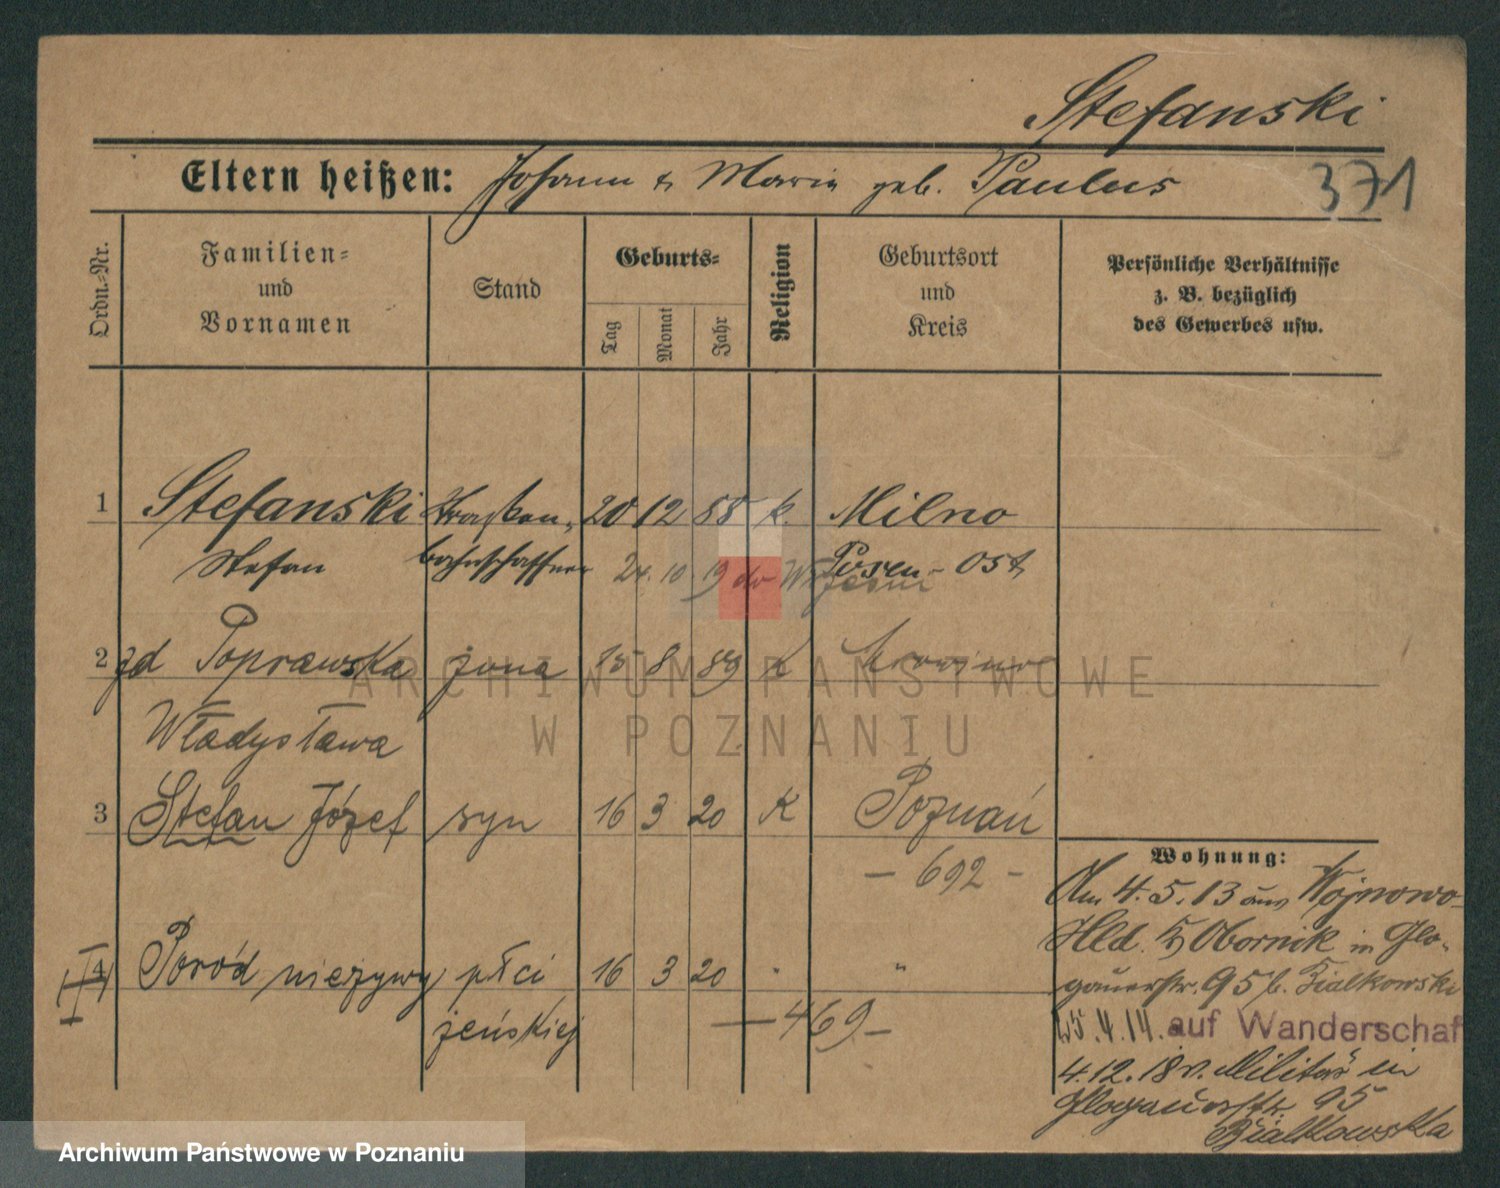 Stefanski
Eltern heißen: Johann & Maria geb. Paulus
371
Ordn.-Nr.
Familien-
und
Vornamen
Stand
Geburts-
Tag
Monat
Jahr
Religion
Geburtsort
und
Kreis
Persönliche Verhältnisse
z. B. bezüglich
des Gewerbes usw.
1 Stefanski Straßen- 20 12 88 k. Milno
Stefan bahnschaffner Posen-Ost
24. 10 19 do Wrześni
2 zd Poprawska żona 15 8 89 K
Władysława
3 Stefan Józef syn 16 3 20 K Poznań
- 692 -
4 Poród nieżywy płci 16 3 20 " "
żeńskiej
- 469 -
Wohnung:
Am 4.5.13 aus Wojnowo-
Hld. Kr Obornik in Glo-
gauerstr. 95 b. Bialkowski
15.4.14. auf Wanderschaf
4.12.18 v. Militär in
Glogauerstr. 95
Bialkowska
ARCHIWUM PAŃSTWOWE
W POZNANIU
Archiwum Państwowe w Poznaniu